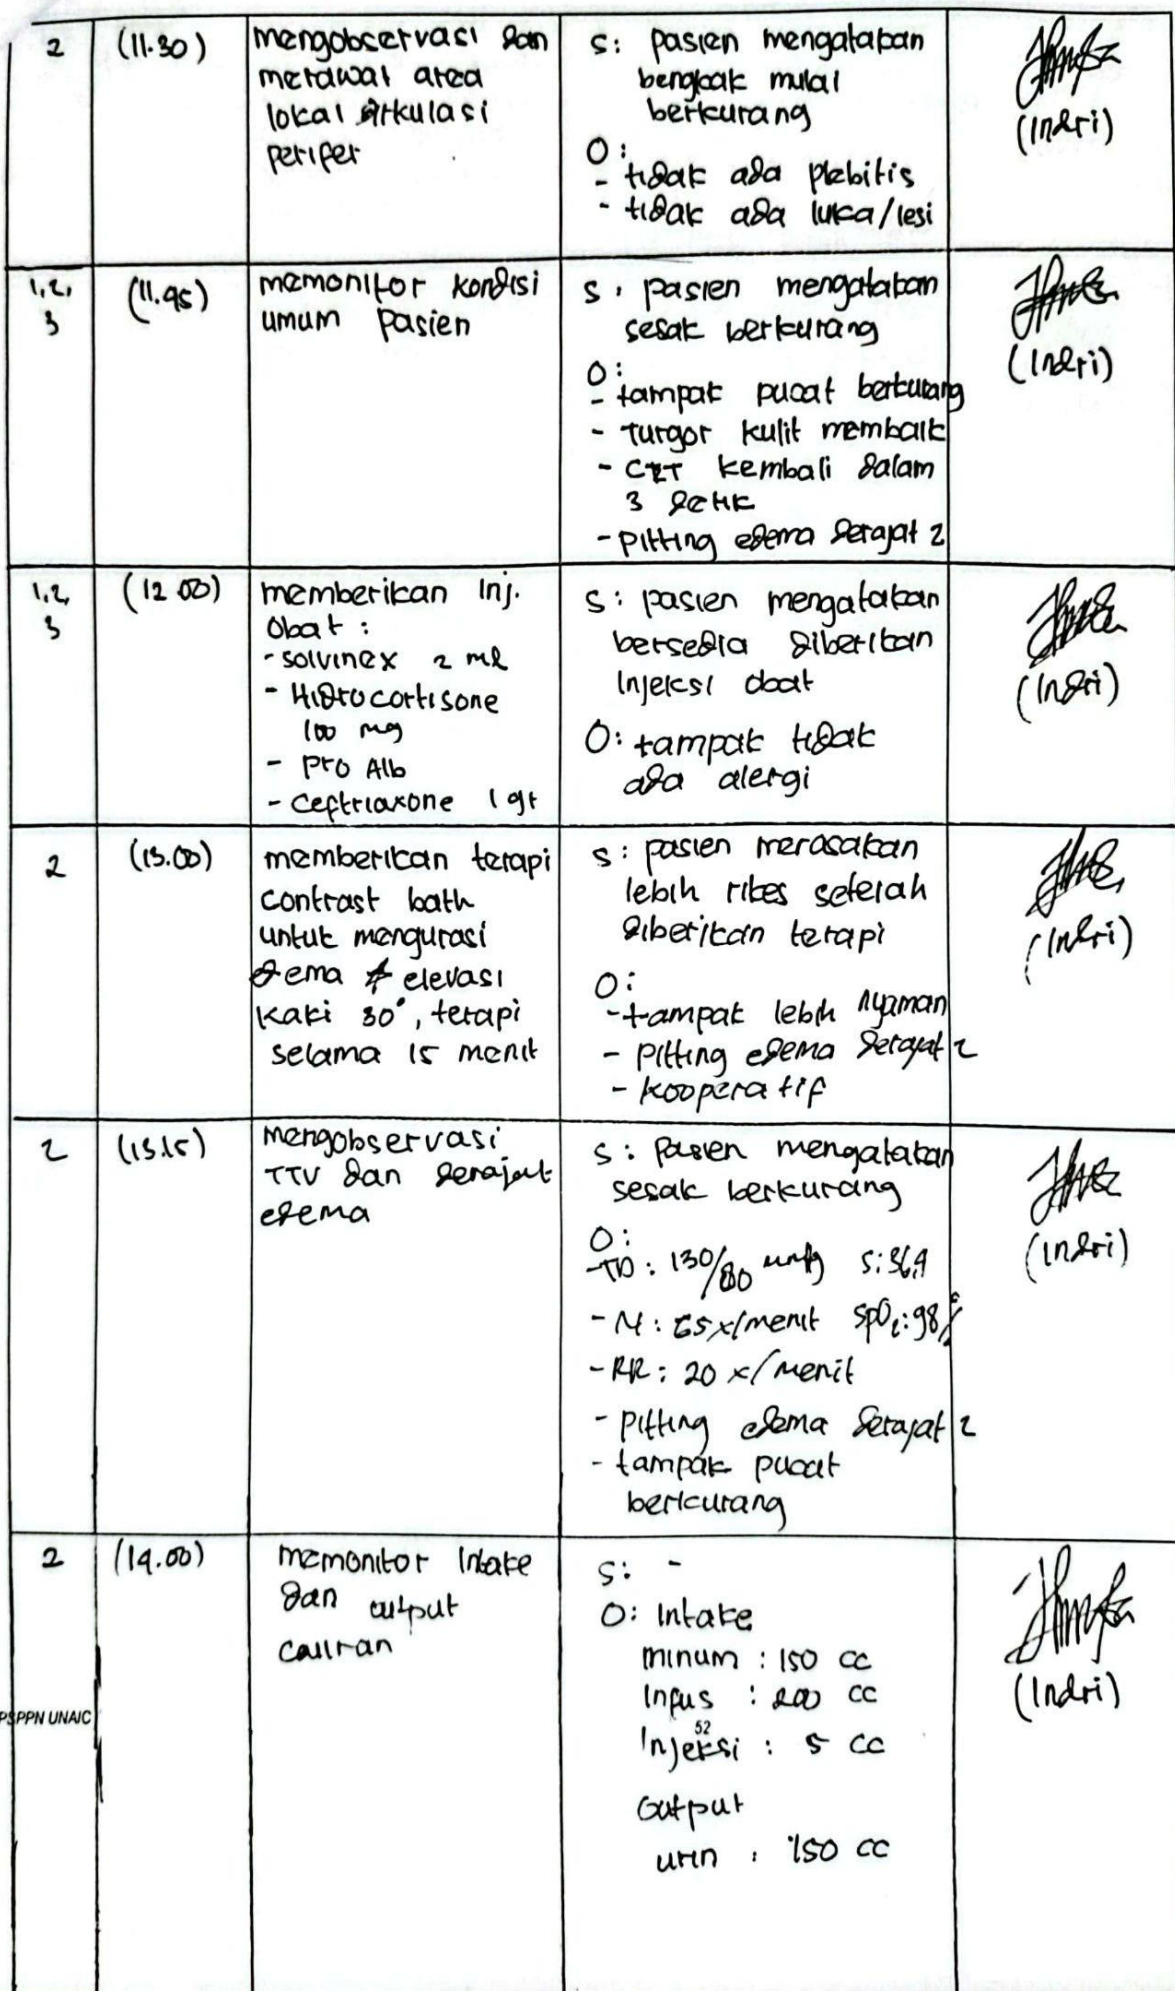 2 (11.30) mengobservasi dan
merawat area
lokal sirkulasi
perifer
S: pasien mengatakan
bengkak mulai
berkurang
O:
- tidak ada plebitis
- tidak ada luka/lesi
(Indri)
1,2,
3 (11.45) memonitor kondisi
umum pasien
S: pasien mengatakan
sesak berkurang
O:
- tampak pucat berkurang
- Turgor kulit membaik
- CRT kembali dalam
3 detik
- Pitting edema derajat 2
(Indri)
1,2,
3 (12.00) memberikan Inj.
Obat:
- Solvinex 2 ml
- Hidrocortisone
100 mg
- Pro Alb
- Ceftriaxone 1 gr
S: pasien mengatakan
bersedia diberikan
Injeksi obat
O: tampak tidak
ada alergi
(Indri)
2 (13.00) memberikan terapi
contrast bath
untuk mengurasi
dema elevasi
kaki 30°, terapi
selama 15 menit
S: pasien merasakan
lebih rileks setelah
diberikan terapi
O:
- tampak lebih nyaman
- Pitting edema derajat 2
- Kooperatif
(Indri)
2 (13.15) mengobservasi
TTV dan derajat
edema
S: Pasien mengatakan
sesak berkurang
O:
- TD: 130/80 mmHg S: 36,4
- N: x/menit SpO2: 98%
- RR: 20 x/menit
- Pitting edema derajat 2
- tampak pucat
berkurang
(Indri)
2 (14.00) memonitor Intake
dan output
cairan
S: -
O: Intake
minum : 150 cc
Infus : 200 cc
Injeksi : 5 cc
Output
urin : 150 cc
(Indri)
PSPPN UNAIC
52